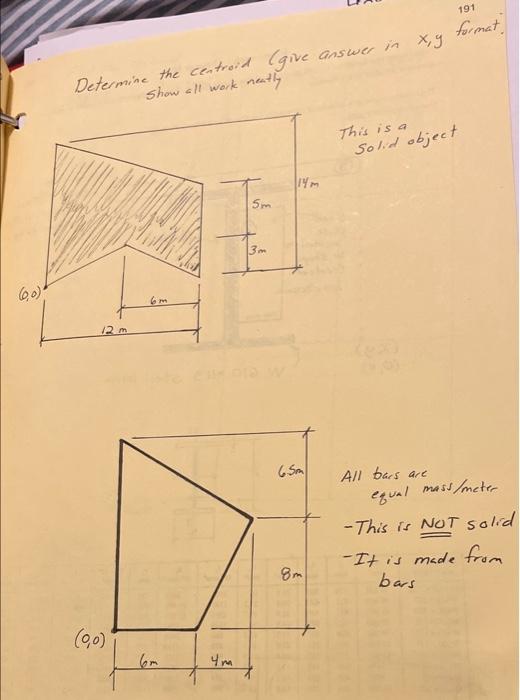 191
Determine the centroid (give answer in x,y format.
Show all work neatly
This is a
Solid object
14m
5m
3m
(0,0)
6m
12 m
6.5m
All bars are
equal mass/meter
- This is NOT solid
- It is made from
bars
8m
(0,0)
6m
4m